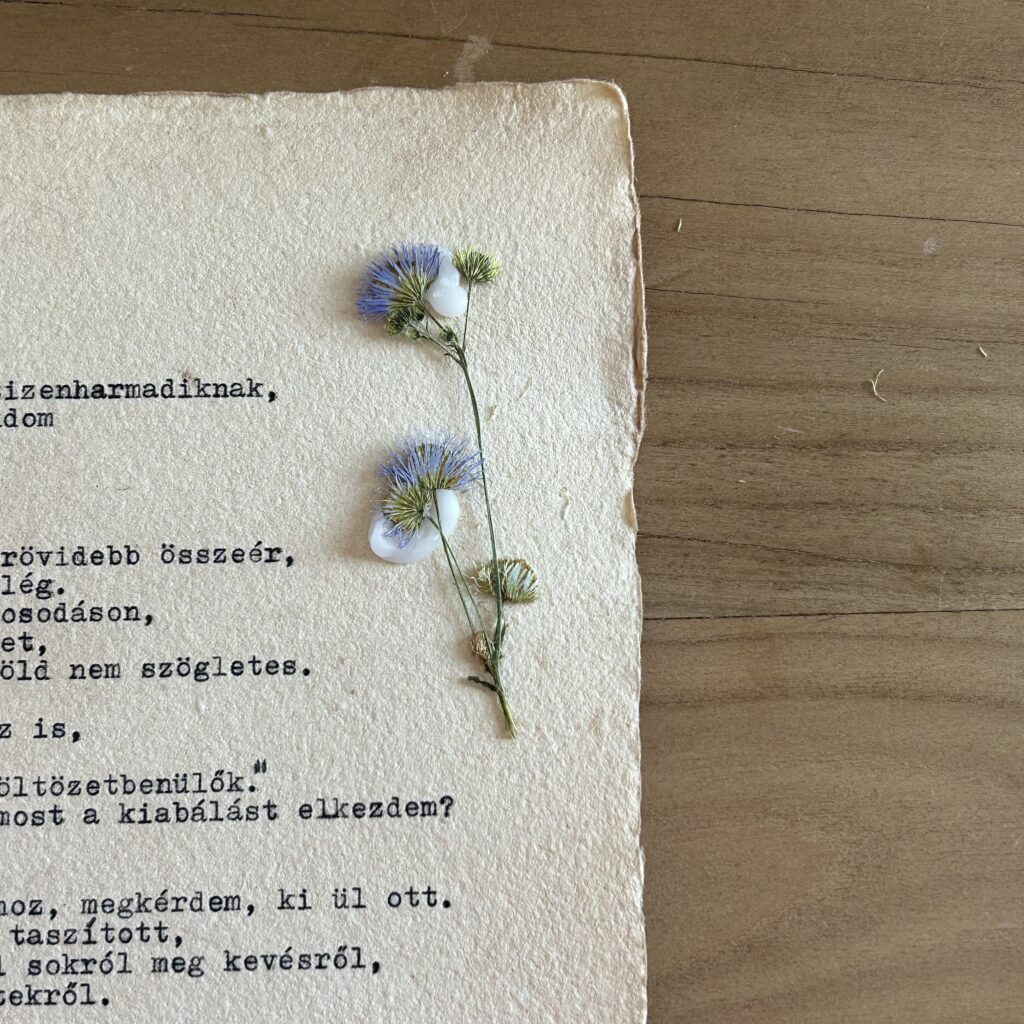 sizenharmadiknak,
dom
rövidebb összeér,
lég.
osodáson,
et,
öld nem szögletes.
z is,
öltözetbenülők."
most a kiabálást elkezdem?
hoz, megkérdem, ki ül ott.
taszított,
l sokról meg kevésről,
tekről.